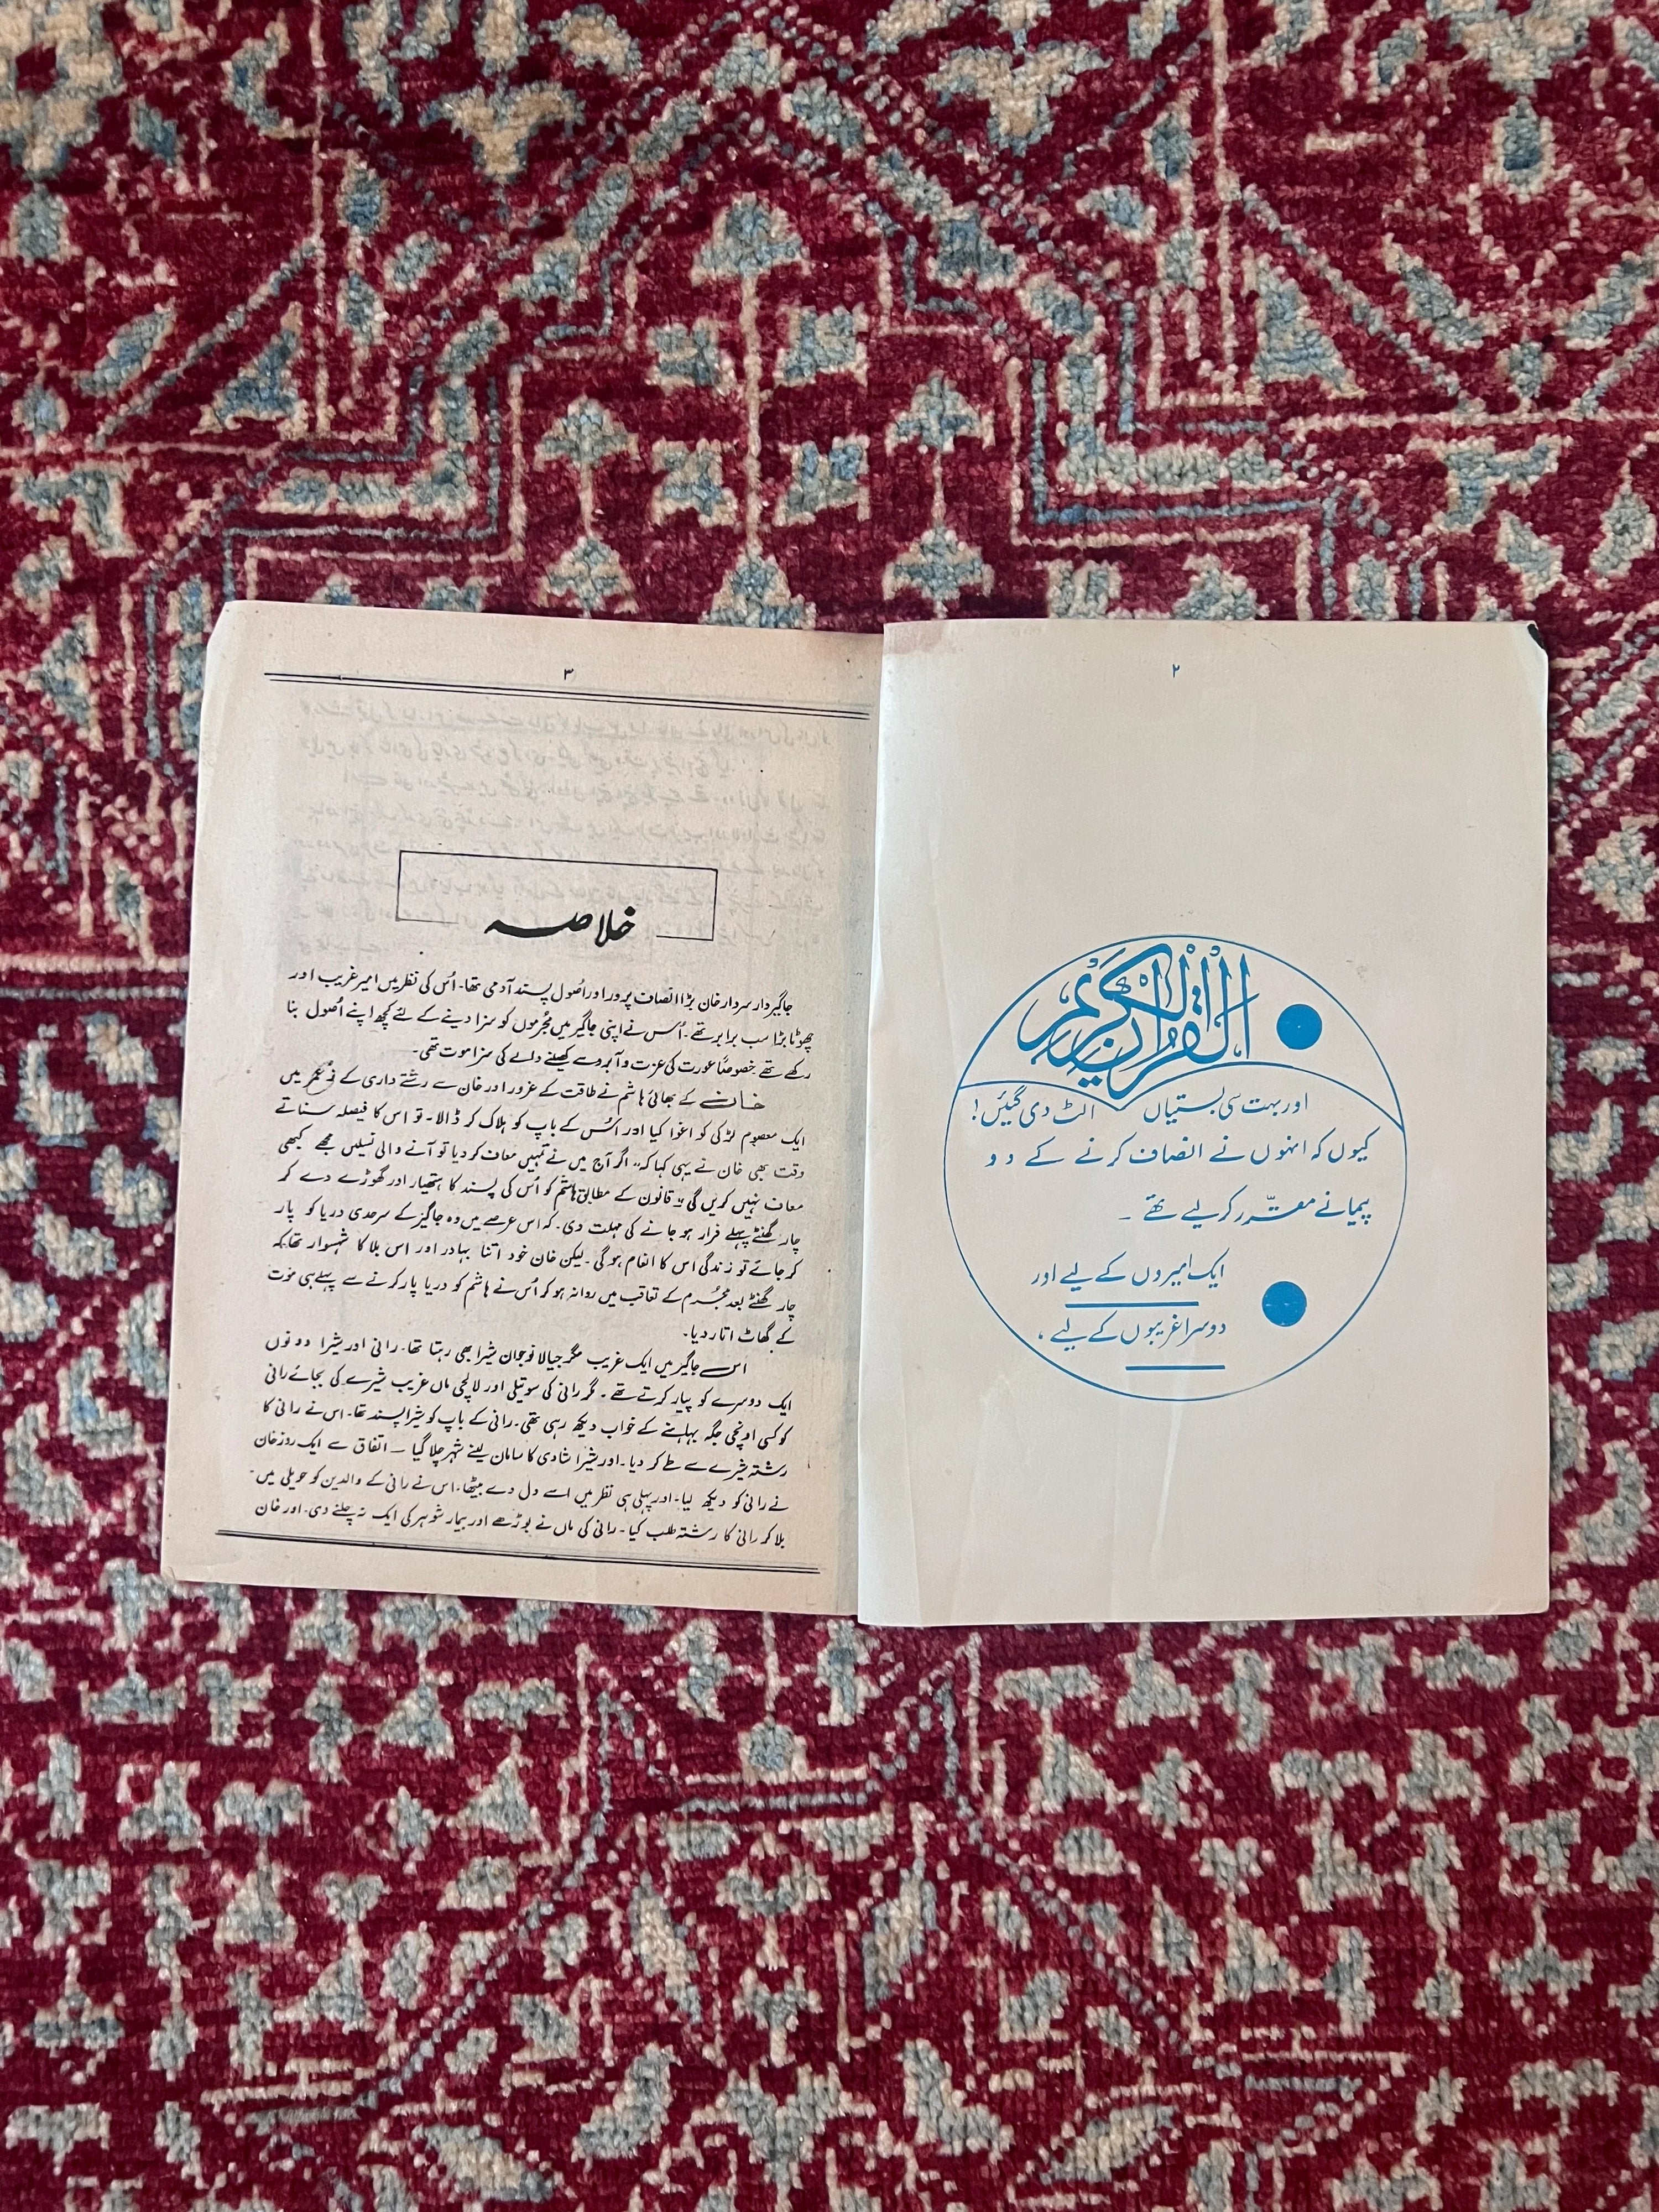 ۲
القرآن الكريم
اور بہت سی بستیاں الٹ دی گیئں!
کیوں کہ انہوں نے انصاف کرنے کے دو
پیمانے مقرّر کر لیے تھے ۔
ایک امیروں کے لیے اور
دوسرا غریبوں کے لیے،
۳
خلاصہ
جاگیردار سردار خان بڑا انصاف پرور اور اُصول پسند آدمی تھا۔ اُس کی نظر میں امیر غریب اور
چھوٹا بڑا سب برابر تھے۔ اُس نے اپنی جاگیر میں مجُرموں کو سزا دینے کے لئے کچھ اپنے اُصول بنا
رکھے تھے خصوصاً عورت کی عزت و آبرو سے کھیلنے والے کی سزا موت تھی۔
خان کے بھائی ہاشم نے طاقت کے غرور اور خان سے رشتے داری کے میں
ایک معصوم لڑکی کو اغوا کیا اور اُس کے باپ کو ہلاک کر ڈالا۔ تو اس کا فیصلہ سناتے
وقت بھی خان نے یہی کہا کہ،، اگر آج میں نے تمہیں معاف کر دیا تو آنے والی نسلیں مجھے کبھی
معاف نہیں کریں گی،، قانون کے مطابق ہاشم کو اُس کی پسند کا ہتھیار اور گھوڑے دے کر
چار گھنٹے پہلے فرار ہو جانے کی مہلت دی۔ کہ اس عرصے میں وہ جاگیر کے سرحدی دریا کو پار
کر جائے تو زندگی اس کا انعام ہو گی۔ لیکن خان خود اتنا بہادر اور اس بلا کا شہسوار تھا کہ
چار گھنٹے بعد مجُرم کے تعاقب میں روانہ ہو کر اُس نے ہاشم کو دریا پار کرنے سے پہلے ہی موت
کے گھاٹ اتار دیا۔
اس جاگیر میں ایک غریب مگر جیالا نوجوان شیرا بھی رہتا تھا۔ رانی اور شیرا دونوں
ایک دوسرے کو پیار کرتے تھے ۔ مگر رانی کی سوتیلی اور لالچی ماں غریب شیرے کی بجائے رانی
کو کسی اونچی جگہ بیاہنے کے خواب دیکھ رہی تھی۔ رانی کے باپ کو شیرا پسند تھا۔ اس نے رانی کا
رشتہ شیرے سے طے کر دیا۔ اور شیرا شادی کا سامان لینے شہر چلا گیا ۔ اتفاق سے ایک روز خان
نے رانی کو دیکھ لیا۔ اور پہلی ہی نظر میں اسے دل دے بیٹھا۔ اس نے رانی کے والدین کو حویلی میں
بلا کر رانی کا رشتہ طلب کیا۔ رانی کی ماں نے بوڑھے اور بیمار شوہر کی ایک نہ چلنے دی۔ اور خان